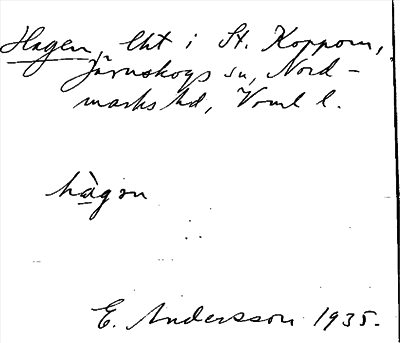 Hagen, lht i St. Koppom,
Järnskogs sn, Nord-
marks hd, Vrml l.
hàgon
E. Andersson 1935.